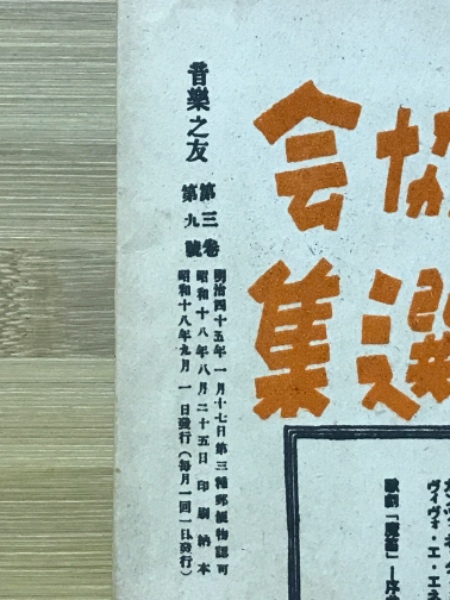 音樂之友
第三卷
第九號
明治四十五年一月十七日第三種郵便物認可
昭和十八年八月二十五日印刷納本
昭和十八年九月一日發行(毎月一回一日發行)
協会
選集
ヴィヴォ・エ・エネ